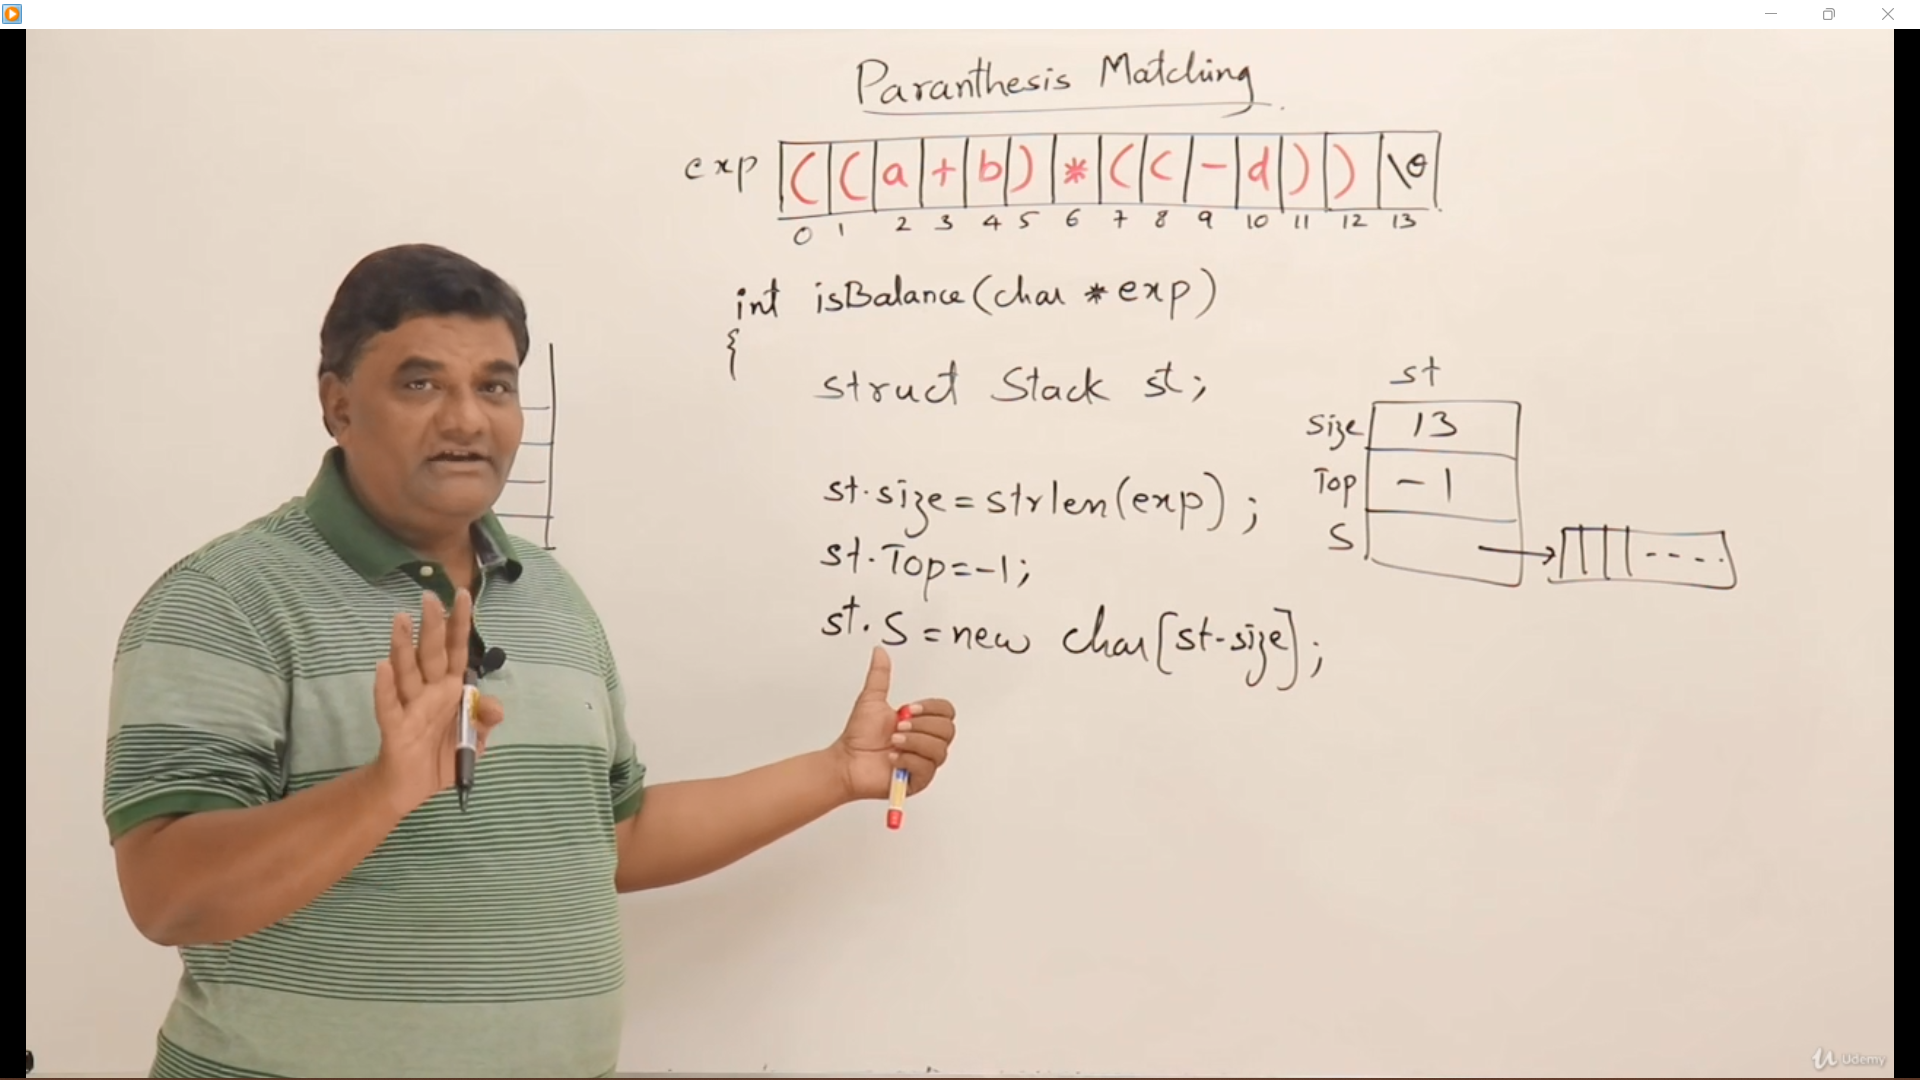 Paranthesis Matching
exp ( ( a + b ) * ( c - d ) ) \0
0 1 2 3 4 5 6 7 8 9 10 11 12 13
int isBalance(char *exp)
{
struct Stack st;
st.size=strlen(exp);
st.Top=-1;
st.S=new char[st.size];
st
size 13
Top -1
S
Udemy